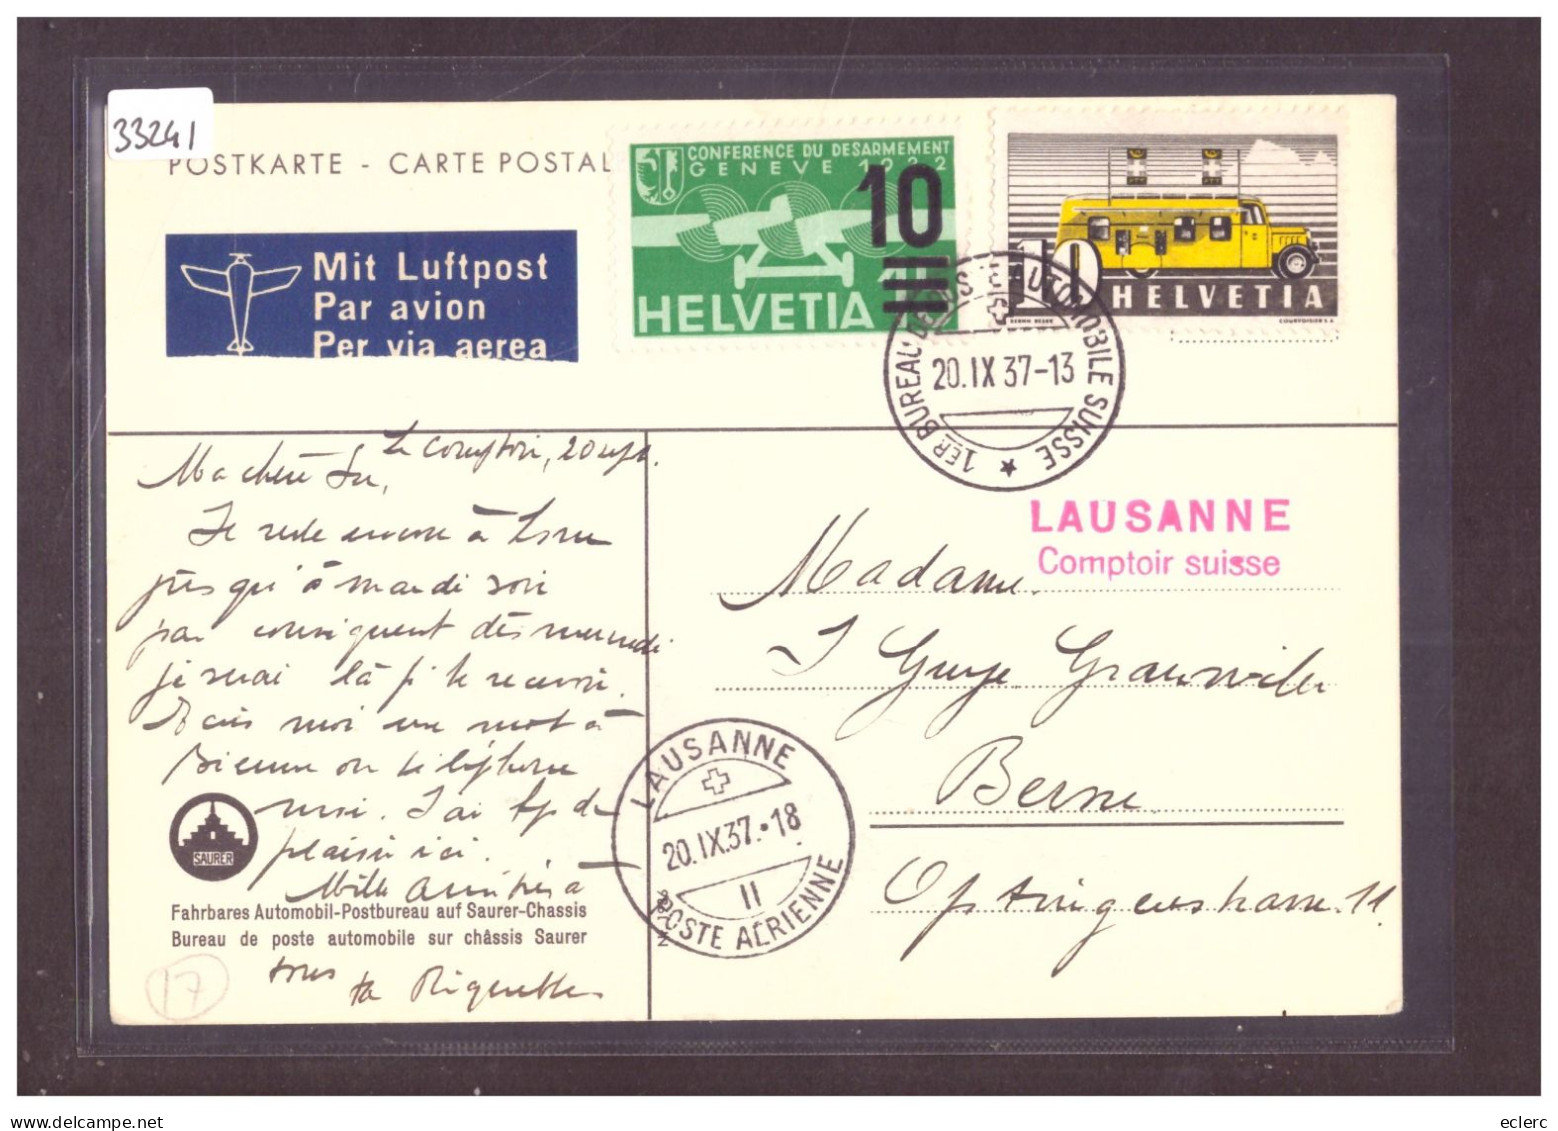 33241
POSTKARTE - CARTE POSTAL
Mit Luftpost
Par avion
Per via aerea
CONFERENCE DU DESARMEMENT
GENEVE 1932
10
HELVETIA
10
HELVETIA
COURVOISIER S.A.
1ER BUREAU DE POSTE AUTOMOBILE SUISSE
20.IX 37-13
LAUSANNE
Comptoir suisse
Le Comptoir, 20 sept.
Ma chère
Je reste encore à
jusqu'à mardi soir
par conséquent dès mercredi
je serai là p. te recevoir.
Ecris moi un mot à
Bienne ou téléphone
moi. J'ai de
plaisir ici.
Mille amitiés à
tous
ta Riquette
SAURER
Fahrbares Automobil-Postbureau auf Saurer-Chassis
Bureau de poste automobile sur châssis Saurer
17
LAUSANNE
20.IX.37.-18
II
POSTE AÉRIENNE
Madame
J Guye
Berne
11
eclerc